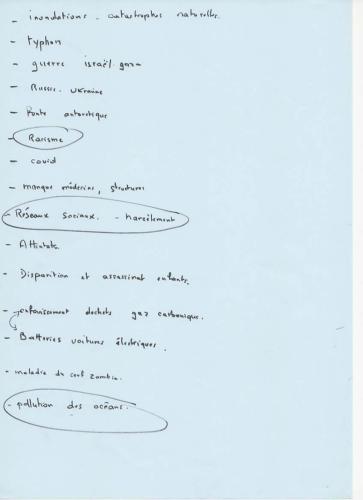 - inondations. catastrophes naturelles.
- typhon
- guerre israël. gaza
- Russie. Ukraine
- Fonte antarctique
- Racisme
- covid
- manque médecins, structures
- Réseaux sociaux. - harcèlement
- Attentats.
- Disparition et assassinat enfants.
- enfouissement déchets gaz carbonique.
- Batteries voitures électriques.
- maladie du cerf zombie.
- pollution des océans.